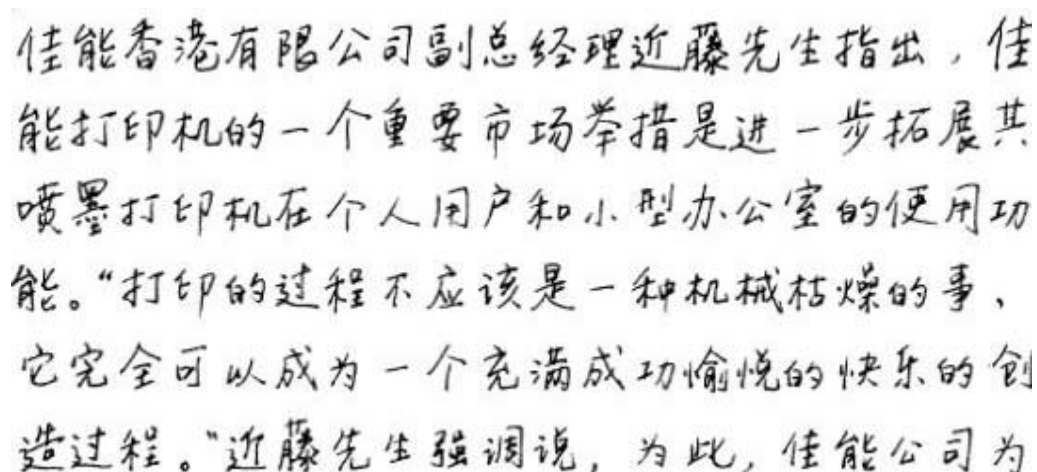 佳能香港有限公司副总经理近藤先生指出，佳
能打印机的一个重要市场举措是进一步拓展其
喷墨打印机在个人用户和小型办公室的使用功
能。“打印的过程不应该是一种机械枯燥的事、
它完全可以成为一个充满成功愉悦的快乐的创
造过程。”近藤先生强调说，为此，佳能公司为